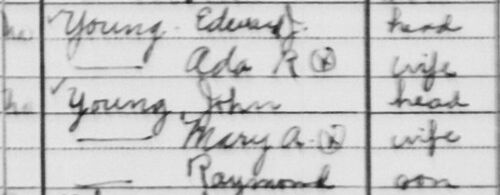 Young Edward J. head
— Ada R ⓧ wife
Young John head
— Mary A. ⓧ wife
— Raymond son